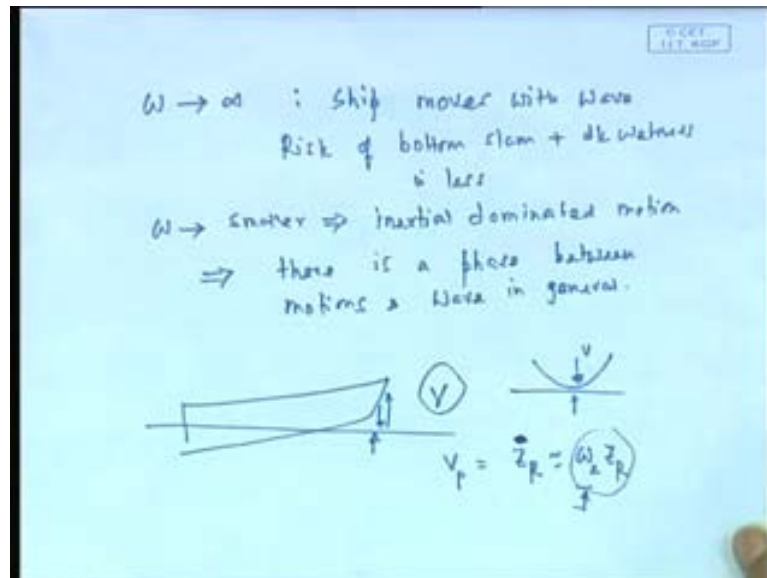 ω → ∞ : Ship moves with wave
Risk of bottom slam + dk wetness
is less
ω → smaller ⇒ inertial dominated motion
⇒ there is a phase between
motions & wave in general.
V
V
V_p = Ż_R = ω_e Z_R